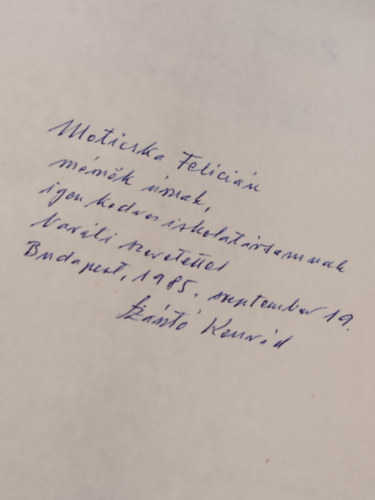 Moticska Felicián
mérnök úrnak,
igen kedves iskolatársamnak
baráti szeretettel
Budapest, 1985. szeptember 19.
Szántó Konrád